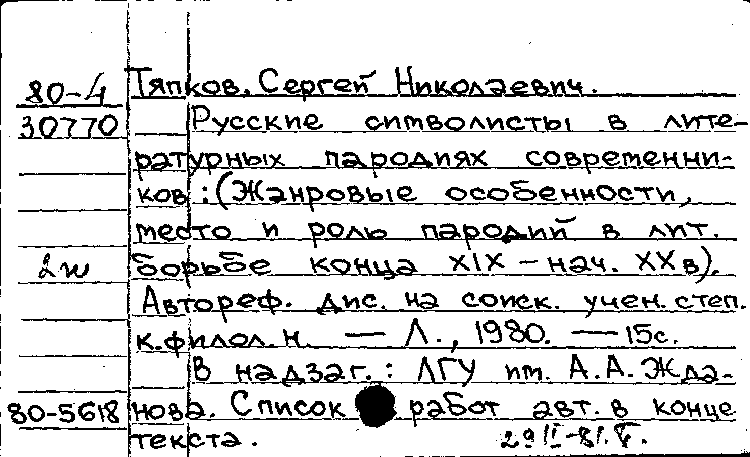 80-4 Тяпков, Сергей Николаевич.
30770 Русские символисты в лите-
ратурных пародиях современни-
ков : (Жанровые особенности,
место и роль пародий в лит.
борьбе конца XIX – нач. XX в).
Автореф. дис. на соиск. учен. степ.
к. филол. н. — Л., 1980. — 15с.
В надзаг.: ЛГУ им. А.А. Жда-
80-5618 нова. Список работ авт. в конце
текста. 29